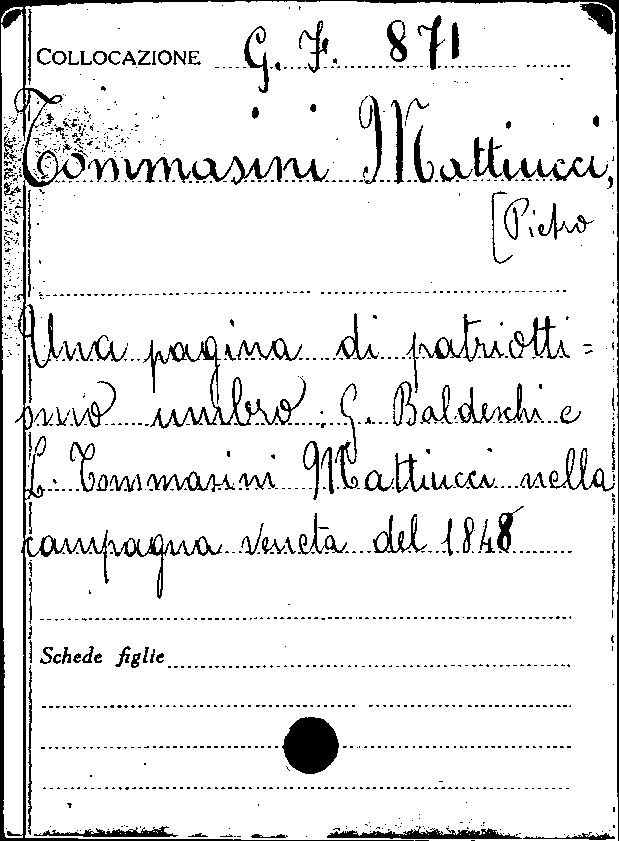 COLLOCAZIONE G. F. 871
Tommasini Mattiucci,
[Pietro
Una pagina di patriotti=
smo umbro: G. Baldeschi e
L. Tommasini Mattiucci nella
campagna veneta del 1848
Schede figlie